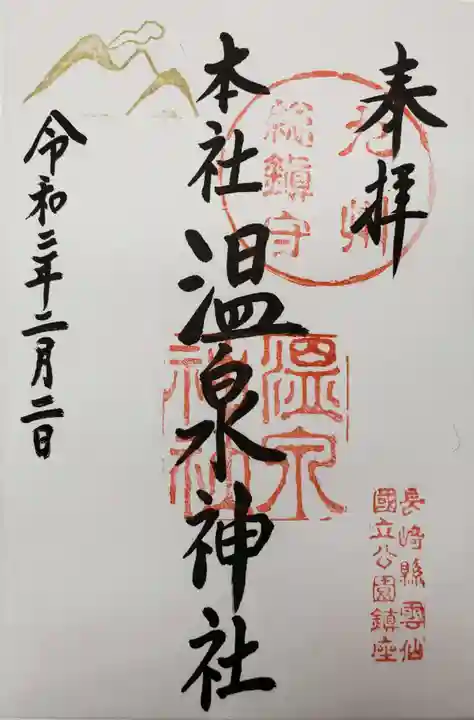 奉拝
九州
総鎮守
本社温泉神社
温泉
神社
長崎縣雲仙
國立公園鎮座
令和三年二月二日